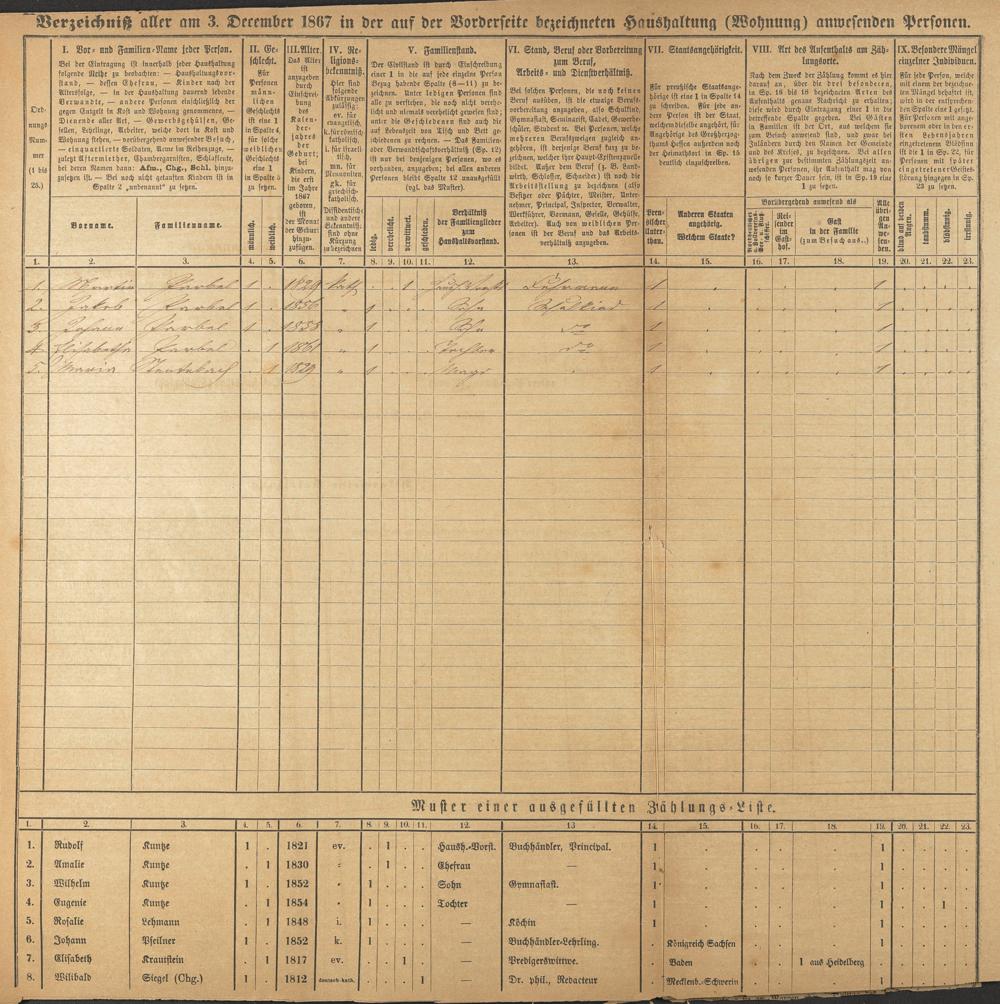 Verzeichniß aller am 3. December 1867 in der auf der Vorderseite bezeichneten Haushaltung (Wohnung) anwesenden Personen.
Ord-
nungs-
Num-
mer
(1 bis
25.)
I. Vor- und Familien-Name jeder Person.
Bei der Eintragung ist innerhalb jeder Haushaltung
folgende Reihe zu beobachten: — Haushaltungsvor-
stand, — dessen Ehefrau, — Kinder nach der
Altersfolge, — in der Haushaltung dauernd lebende
Verwandte, — andere Personen einschließlich der
gegen Entgelt in Kost und Wohnung genommenen, —
Dienende aller Art, — Gewerbsgehülfen, Ge-
sellen, Lehrlinge, Arbeiter, welche dort in Kost und
Wohnung stehen, — vorübergehend anwesender Besuch,
— einquartierte Soldaten, Arme im Reihenzuge, —
zuletzt Aftermiether, Chambergarnisten, Schlafleute,
bei deren Namen dann: Afm., Chg., Schl. hinzu-
zusetzen ist. — Bei noch nicht getauften Kindern ist in
Spalte 2 „unbenannt" zu setzen.
Vorname.
Familienname.
II. Ge-
schlecht.
Für
Personen
männ-
lichen
Geschlechts
ist eine 1
in Spalte 4,
für solche
weiblichen
Geschlechts
eine 1
in Spalte 5
zu setzen.
männlich.
weiblich.
III. Alter.
Das Alter
ist
anzugeben
durch
Einschrei-
bung
des
Kalen-
der-
jahres
der
Geburt;
bei
Kindern,
die erst
im Jahre
1867
geboren,
ist
der Monat
der Geburt
hinzu-
zufügen.
IV. Re-
ligions-
bekenntniß.
Hier sind
folgende
Abkürzungen
zulässig:
ev. für
evangelisch,
k. für römisch-
katholisch,
i. für israeli-
tisch,
mn. für
Mennoniten,
gk. für
griechisch-
katholisch.
Dissidentische
und andere
Bekenntniß.
sind ohne
Kürzung
zu bezeichnen
V. Familienstand.
Der Civilstand ist durch Einschreibung
einer 1 in die auf jede einzelne Person
Bezug habende Spalte (8—11) zu be-
zeichnen. Unter ledigen Personen sind
alle zu verstehen, die noch nicht vereh-
licht und niemals verehelicht gewesen sind;
unter die Geschiedenen sind auch die
auf Lebenszeit von Tisch und Bett ge-
schiedenen zu rechnen. — Das Familien-
oder Verwandtschaftsverhältniß (Sp. 12)
ist nur bei denjenigen Personen, wo es
vorhanden, anzugeben; bei allen anderen
Personen bleibt Spalte 12 unausgefüllt
(vgl. das Muster).
ledig.
verehelicht.
verwittwet.
geschieden.
Verhältniß
der Familienglieder
zum
Haushaltsvorstand.
VI. Stand, Beruf oder Vorbereitung
zum Beruf,
Arbeits- und Dienstverhältniß.
Bei solchen Personen, die noch keinen
Beruf ausüben, ist die etwaige Berufs-
vorbereitung anzugeben, also Schulkind,
Gymnasiast, Seminarist, Cadet, Gewerbe-
schüler, Student &c. Bei Personen, welche
mehreren Berufszweigen zugleich an-
gehören, ist derjenige Beruf kurz zu be-
zeichnen, welcher ihre Haupt-Existenzquelle
bildet. Außer dem Beruf (z. B. Land-
wirth, Schlosser, Schneider) ist noch die
Arbeitsstellung zu bezeichnen (also
Besitzer oder Pächter, Meister, Unter-
nehmer, Principal, Inspector, Verwalter,
Werkführer, Vormann, Geselle, Gehülfe,
Arbeiter). Auch von weiblichen Per-
sonen ist der Beruf und das Arbeits-
verhältniß anzugeben.
VII. Staatsangehörigkeit.
Für preußische Staatsange-
hörige ist eine 1 in Spalte 14
zu schreiben. Für jede an-
dere Person ist der Staat,
für Angehörige des Großherzog-
thums Hessen außerdem noch
der Heimathsort in Sp. 15
deutlich einzuschreiben.
Preu-
sischer
Unter-
than.
Anderen Staaten
angehörig.
Welchem Staate?
VIII. Art des Aufenthalts am Zäh-
lungsorte.
Nach dem Zweck der Zählung kommt es hier
darauf an, über die drei besonderen,
in Sp. 16 bis 18 bezeichneten Arten des
Aufenthalts genaue Nachricht zu erhalten;
diese wird durch Eintragung einer 1 in die
betreffende Spalte gegeben. Bei Gästen
in Familien ist der Ort, aus welchem sie
zum Besuch anwesend sind, und zwar bei
Inländern durch den Namen der Gemeinde
und des Kreises, zu bezeichnen. Bei allen
übrigen zur bestimmten Zählungszeit an-
wesenden Personen, ihr Aufenthalt mag von
noch so kurzer Dauer sein, ist in Sp. 19 eine
1 zu setzen.
Vorübergehend anwesend als
Rei-
sender
im
Gast-
hof.
Gast
in der Familie
(zum Besuch aus..)
Alle
übri-
gen
An-
wesen-
den.
IX. Besondere Mängel
einzelner Individuen.
Für jede Person, welche
mit einem der bezeichne-
ten Mängel behaftet ist,
wird in der entsprechen-
den Spalte eine 1 gesetzt.
Für Personen mit ange-
borenem oder in den er-
sten Lebensjahren
eingetretenem Blödsinn
ist die 1 in Sp. 22, für
Personen mit später
eingetretener Geistes-
störung hingegen in Sp.
23 zu setzen.
blind auf beiden
Augen.
taubstumm.
blödsinnig.
irrsinnig.
1. 2. 3. 4. 5. 6. 7. 8. 9. 10. 11. 12. 13. 14. 15. 16. 17. 18. 19. 20. 21. 22. 23.
1. Martin 1 . 1829 kath. . . 1 Fuhrmann 1 1
2. Jakob 1 . 1856 „ 1 Sohn Schulkind 1 1
3. Johann 1 . 1858 „ 1 Sohn do 1 1
4. Elisabetha . 1 1861 „ 1 Tochter do 1 1
5. Maria . 1 1829 „ 1 Magd 1 1
Muster einer ausgefüllten Zählungs-Liste.
1. 2. 3. 4. 5. 6. 7. 8. 9. 10. 11. 12. 13 14. 15. 16. 17. 18. 19. 20. 21. 22. 23.
1. Rudolf Kuntze 1 . 1821 ev. . 1 . . Haush.-Vorst. Buchhändler, Principal. 1 . . . . 1 . . . .
2. Amalie Kuntze . 1 1830 „ . 1 . . Ehefrau — 1 . . . . 1 . . . .
3. Wilhelm Kuntze 1 . 1852 „ 1 . . . Sohn Gymnasiast. 1 . . . . 1 . . . .
4. Eugenie Kuntze . 1 1854 „ 1 . . . Tochter — 1 . . . . 1 . . 1 .
5. Rosalie Lehmann . 1 1848 i. 1 . . . — Köchin 1 . . . . 1 . . . .
6. Johann Pfeilner 1 . 1852 k. 1 . . . — Buchhändler-Lehrling. . Königreich Sachsen . . . 1 . . . .
7. Elisabeth Krautstein . 1 1817 ev. . . 1 . — Predigerswittwe. . Baden . . 1 aus Heidelberg . . . . .
8. Wilibald Siegel (Chg.) 1 . 1812 deutsch-kath. . . . 1 — Dr. phil., Redacteur . Mecklenb.-Schwerin . . . 1 . . . .